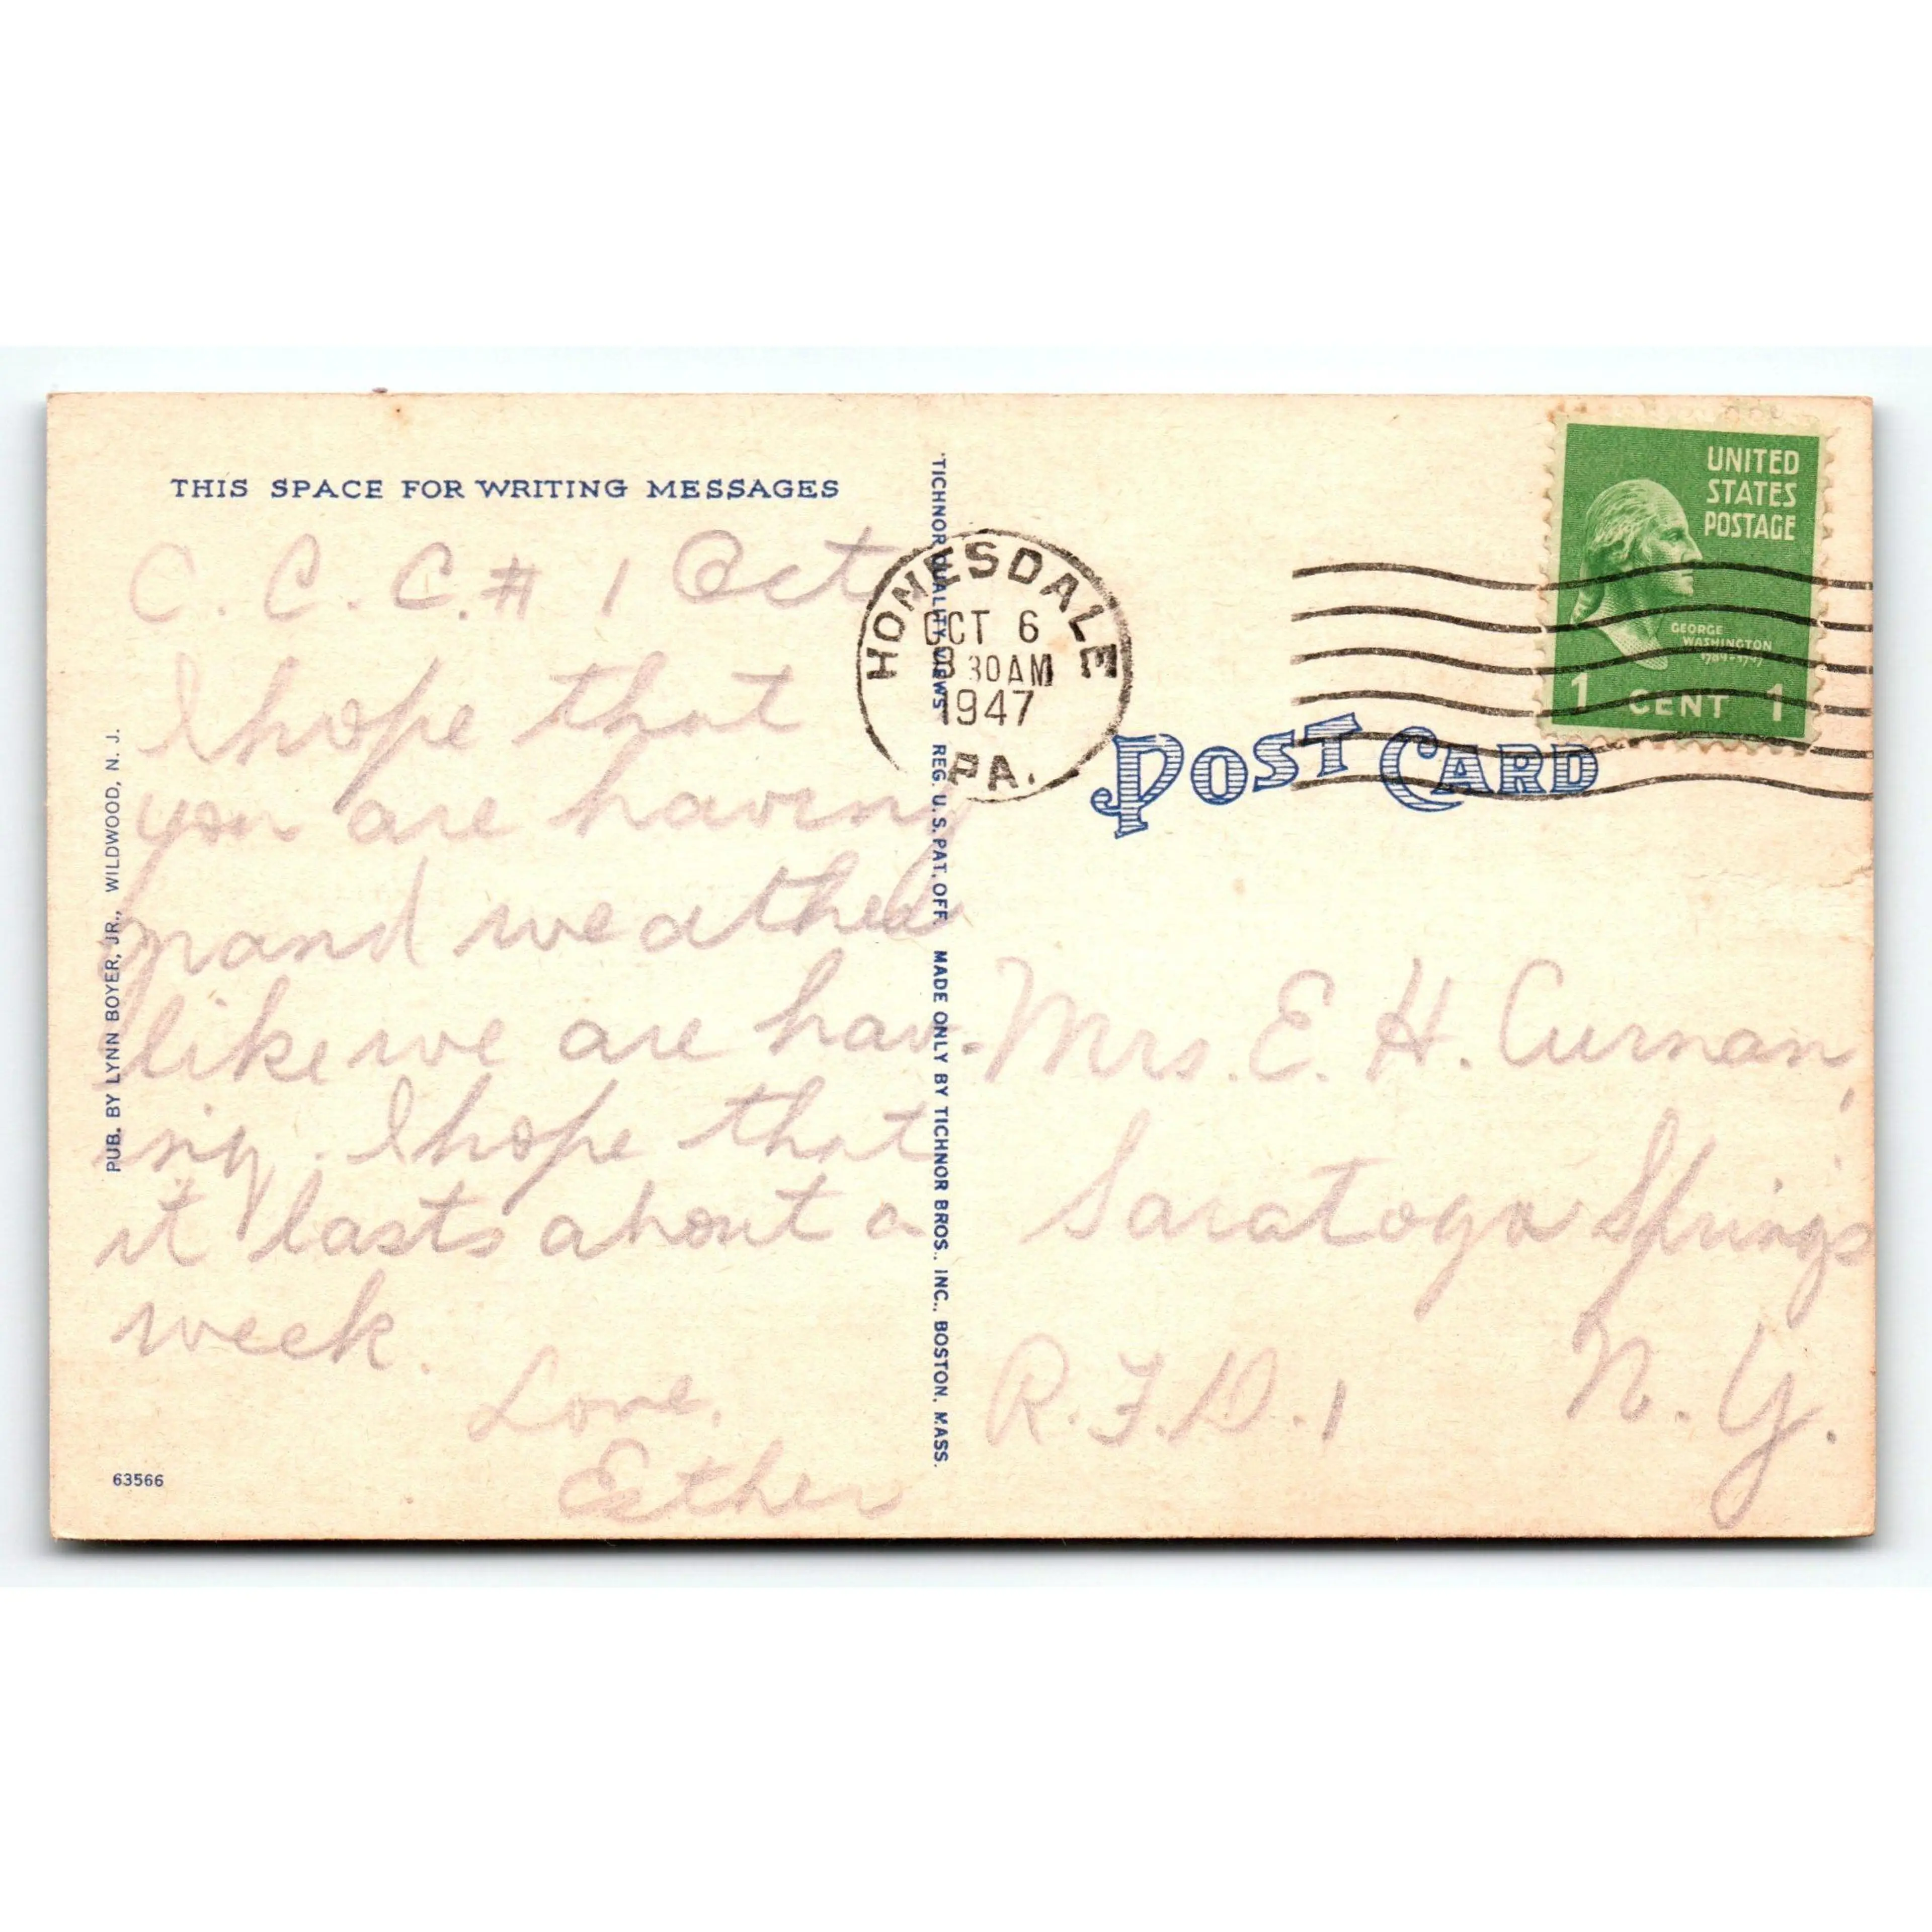 THIS SPACE FOR WRITING MESSAGES
C. C. C. # 1 Oct
I hope that
you are having
grand weather
like we are hav-
ing. I hope that
it lasts about a
week.
Love,
Esther
PUB. BY LYNN BOYER, JR., WILDWOOD, N. J.
63566
"TICHNOR QUALITY VIEWS" REG. U. S. PAT. OFF. MADE ONLY BY TICHNOR BROS., INC., BOSTON, MASS.
HONESDALE
OCT 6
30 AM
1947
PA.
UNITED
STATES
POSTAGE
GEORGE
WASHINGTON
1789-1797
1 CENT 1
POST CARD
Mrs. E. H. Curnan,
Saratoga Springs
N. Y.
R. F. D. 1